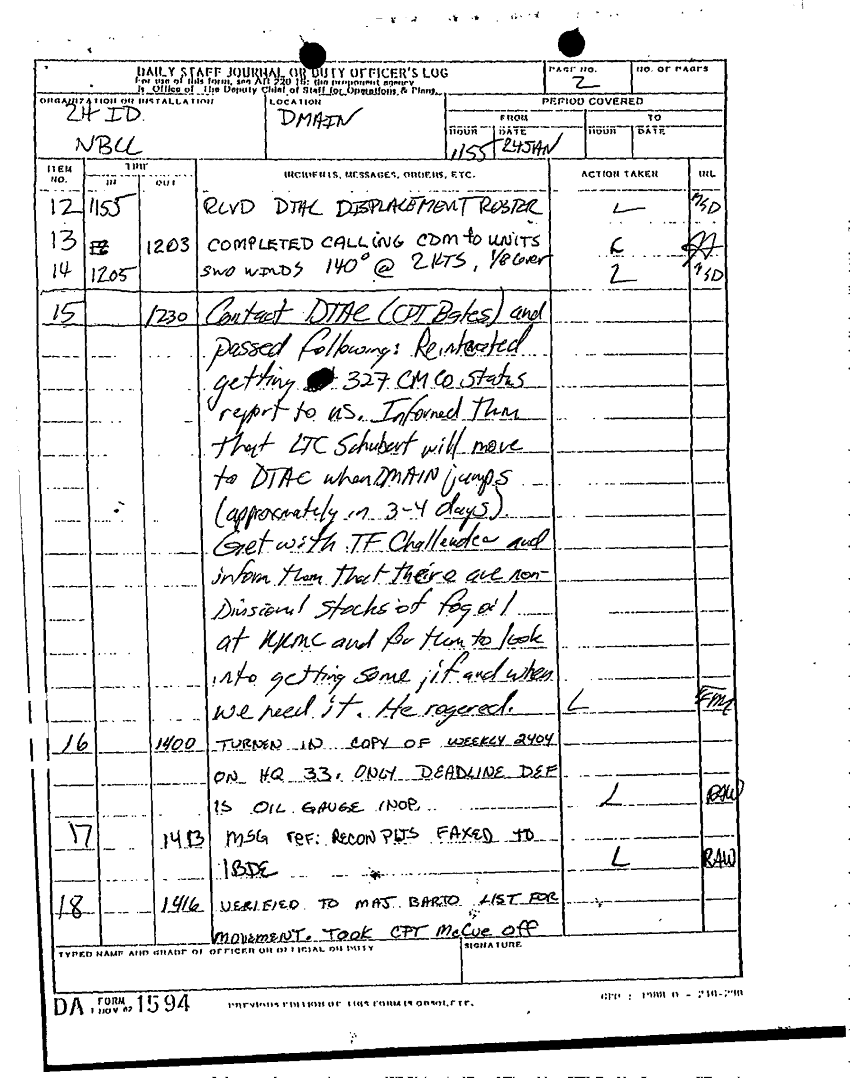 DAILY STAFF JOURNAL OR DUTY OFFICER'S LOG
For use of this form, see AR 220-15; the proponent agency
is Office of The Deputy Chief of Staff for Operations & Plans.
PAGE NO.
2
NO. OF PAGES
ORGANIZATION OR INSTALLATION
24 ID
NBCC
LOCATION
DMAIN
PERIOD COVERED
FROM
TO
HOUR
DATE
HOUR
DATE
1155
24JAN
ITEM NO.
TIME
IN
OUT
INCIDENTS, MESSAGES, ORDERS, ETC.
ACTION TAKEN
INL
12 1155 RCVD DTAC DISPLACEMENT ROSTER L MSD
13 1203 COMPLETED CALLING CDM to UNITS
14 1205 SWO WINDS 140° @ 2 KTS, 1/8 Cover L MSD
15 1230 Contact DTAC (CPT Bates) and
passed following: Reinterated
getting 327 CM CO status
report to us. Informed Them
that LTC Schubert will move
to DTAC when DMAIN jumps
(approxmately in 3-4 days).
Get with TF Challender and
inform them that there are non-
Divisional stocks of fog oil
at KKMC and for them to look
into getting some, if and when
we need it. He rogered. L
16 1400 TURNEN IN COPY OF WEEKLY 2404
ON HQ 33. ONLY DEADLINE DEF
IS OIL GAUGE INOP. L RAW
17 1413 MSG REF: RECON PLTS FAXED TO
1BDE L RAW
18 1416 VERIFIED TO MAJ BARTO LIST FOR
MOVEMENT. TOOK CPT McCue off
TYPED NAME AND GRADE OF OFFICER OR OFFICIAL ON DUTY
SIGNATURE
DA FORM 1 NOV 62 1594
PREVIOUS EDITION OF THIS FORM IS OBSOLETE.